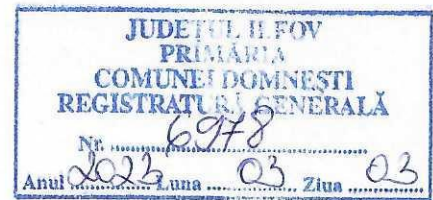 JUDEȚUL ILFOV
PRIMĂRIA
COMUNEI DOMNEȘTI
REGISTRATURĂ GENERALĂ
Nr. 6978
Anul 2023 Luna 03 Ziua 03